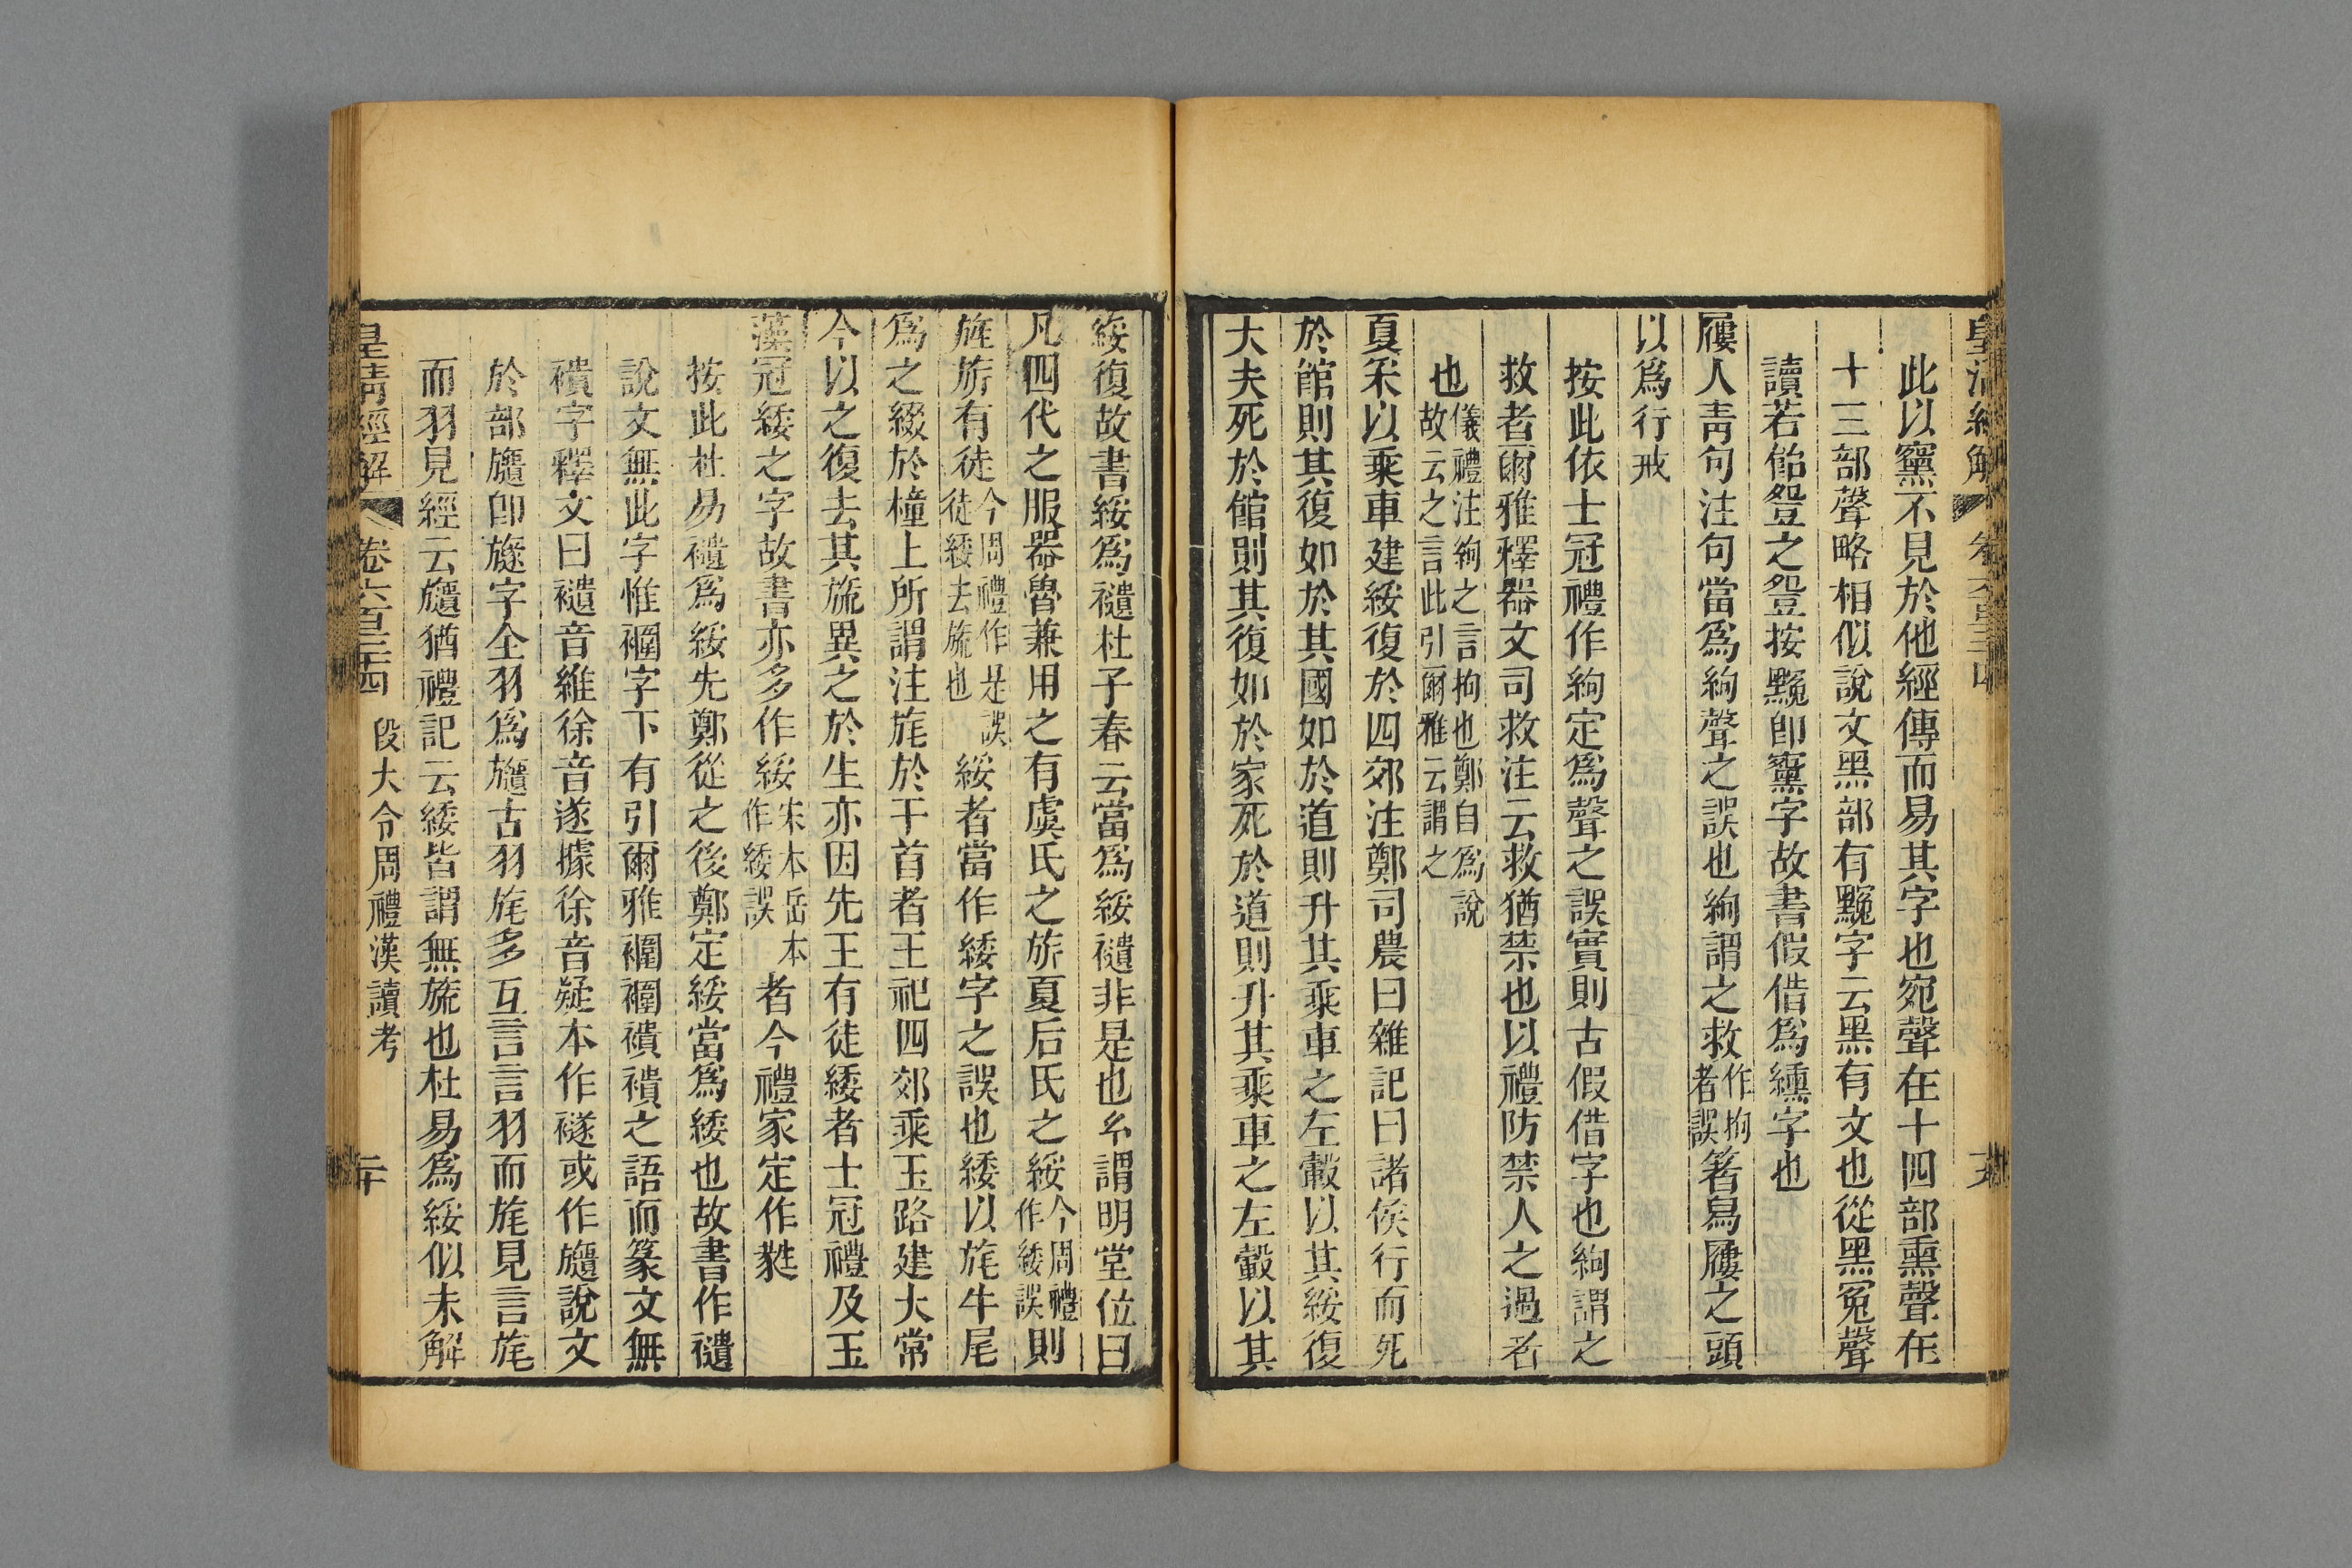 皇清經解 卷六百三十四
此以䵫不見於他經傳而易其字也宛聲在十四部熏聲在
十三部聲略相似說文黑部有䵫字云黑有文也從黑冤聲
讀若飴䇺之䇺按䵫卽䵫字故書假借爲纁字也
屨人靑句注句當爲絇聲之誤也絇謂之救作拘者誤箸舄屨之頭
以爲行戒
按此依士冠禮作絇定爲聲之誤實則古假借字也絇謂之
救者爾雅釋器文司救注云救猶禁也以禮防禁人之過者
也儀禮注絇之言拘也鄭自爲說故云之言此引爾雅云謂之
夏采以乘車建綏復於四郊注鄭司農曰雜記曰諸侯行而死
於館則其復如於其國如於道則升其乘車之左轂以其綏復
大夫死於館則其復如於家死於道則升其乘車之左轂以其
綏復故書綏爲䙡杜子春云當爲綏䙡非是也玄謂明堂位曰
凡四代之服器魯兼用之有虞氏之旂夏后氏之綏今周禮作緌誤則
旌旂有徒今周禮作是誤徒緌去旒也綏者當作緌字之誤也緌以旄牛尾
爲之綴於橦上所謂注旄於干首者王祀四郊乘玉路建大常
今以之復去其旒異之於生亦因先王有徒緌者士冠禮及玉
藻冠緌之字故書亦多作綏宋本岳本作緌誤者今禮家定作蕤
按此杜易䙡爲綏先鄭從之後鄭定綏當爲緌也故書作䙡
說文無此字惟襴字下有引爾雅襴襴襀襀之語而篆文無
襀字釋文曰䙡音維徐音遂據徐音疑本作襚或作旞說文
於部旞卽旞字全羽爲旞古羽旄多互言言羽而旄見言旄
而羽見經云旞猶禮記云緌皆謂無旒也杜易爲綏似未解
皇清經解 卷六百三十四 段大令周禮漢讀考 二十